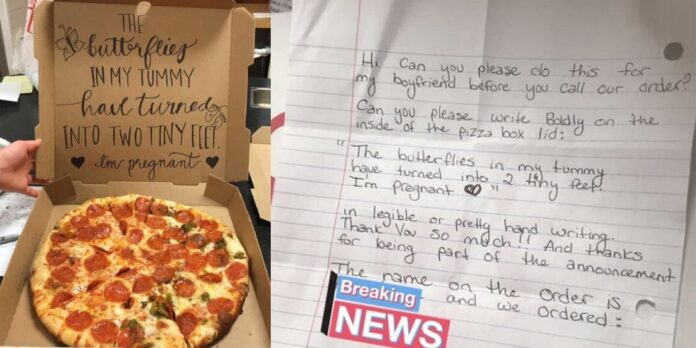 THE
butterflies
IN MY TUMMY
have turned
INTO TWO TINY FEET.
I'm pregnant
Hi, Can you please do this for
my boyfriend before you call our order?
Can you please write Boldly on the
inside of the pizza box lid:
"The butterflies in my tummy
have turned into 2 tiny feet!
I'm pregnant ♥"
in legible or pretty hand writing.
Thank You so much!! And thanks
for being part of the announcement
The name on the order is
and we ordered:
Breaking
NEWS